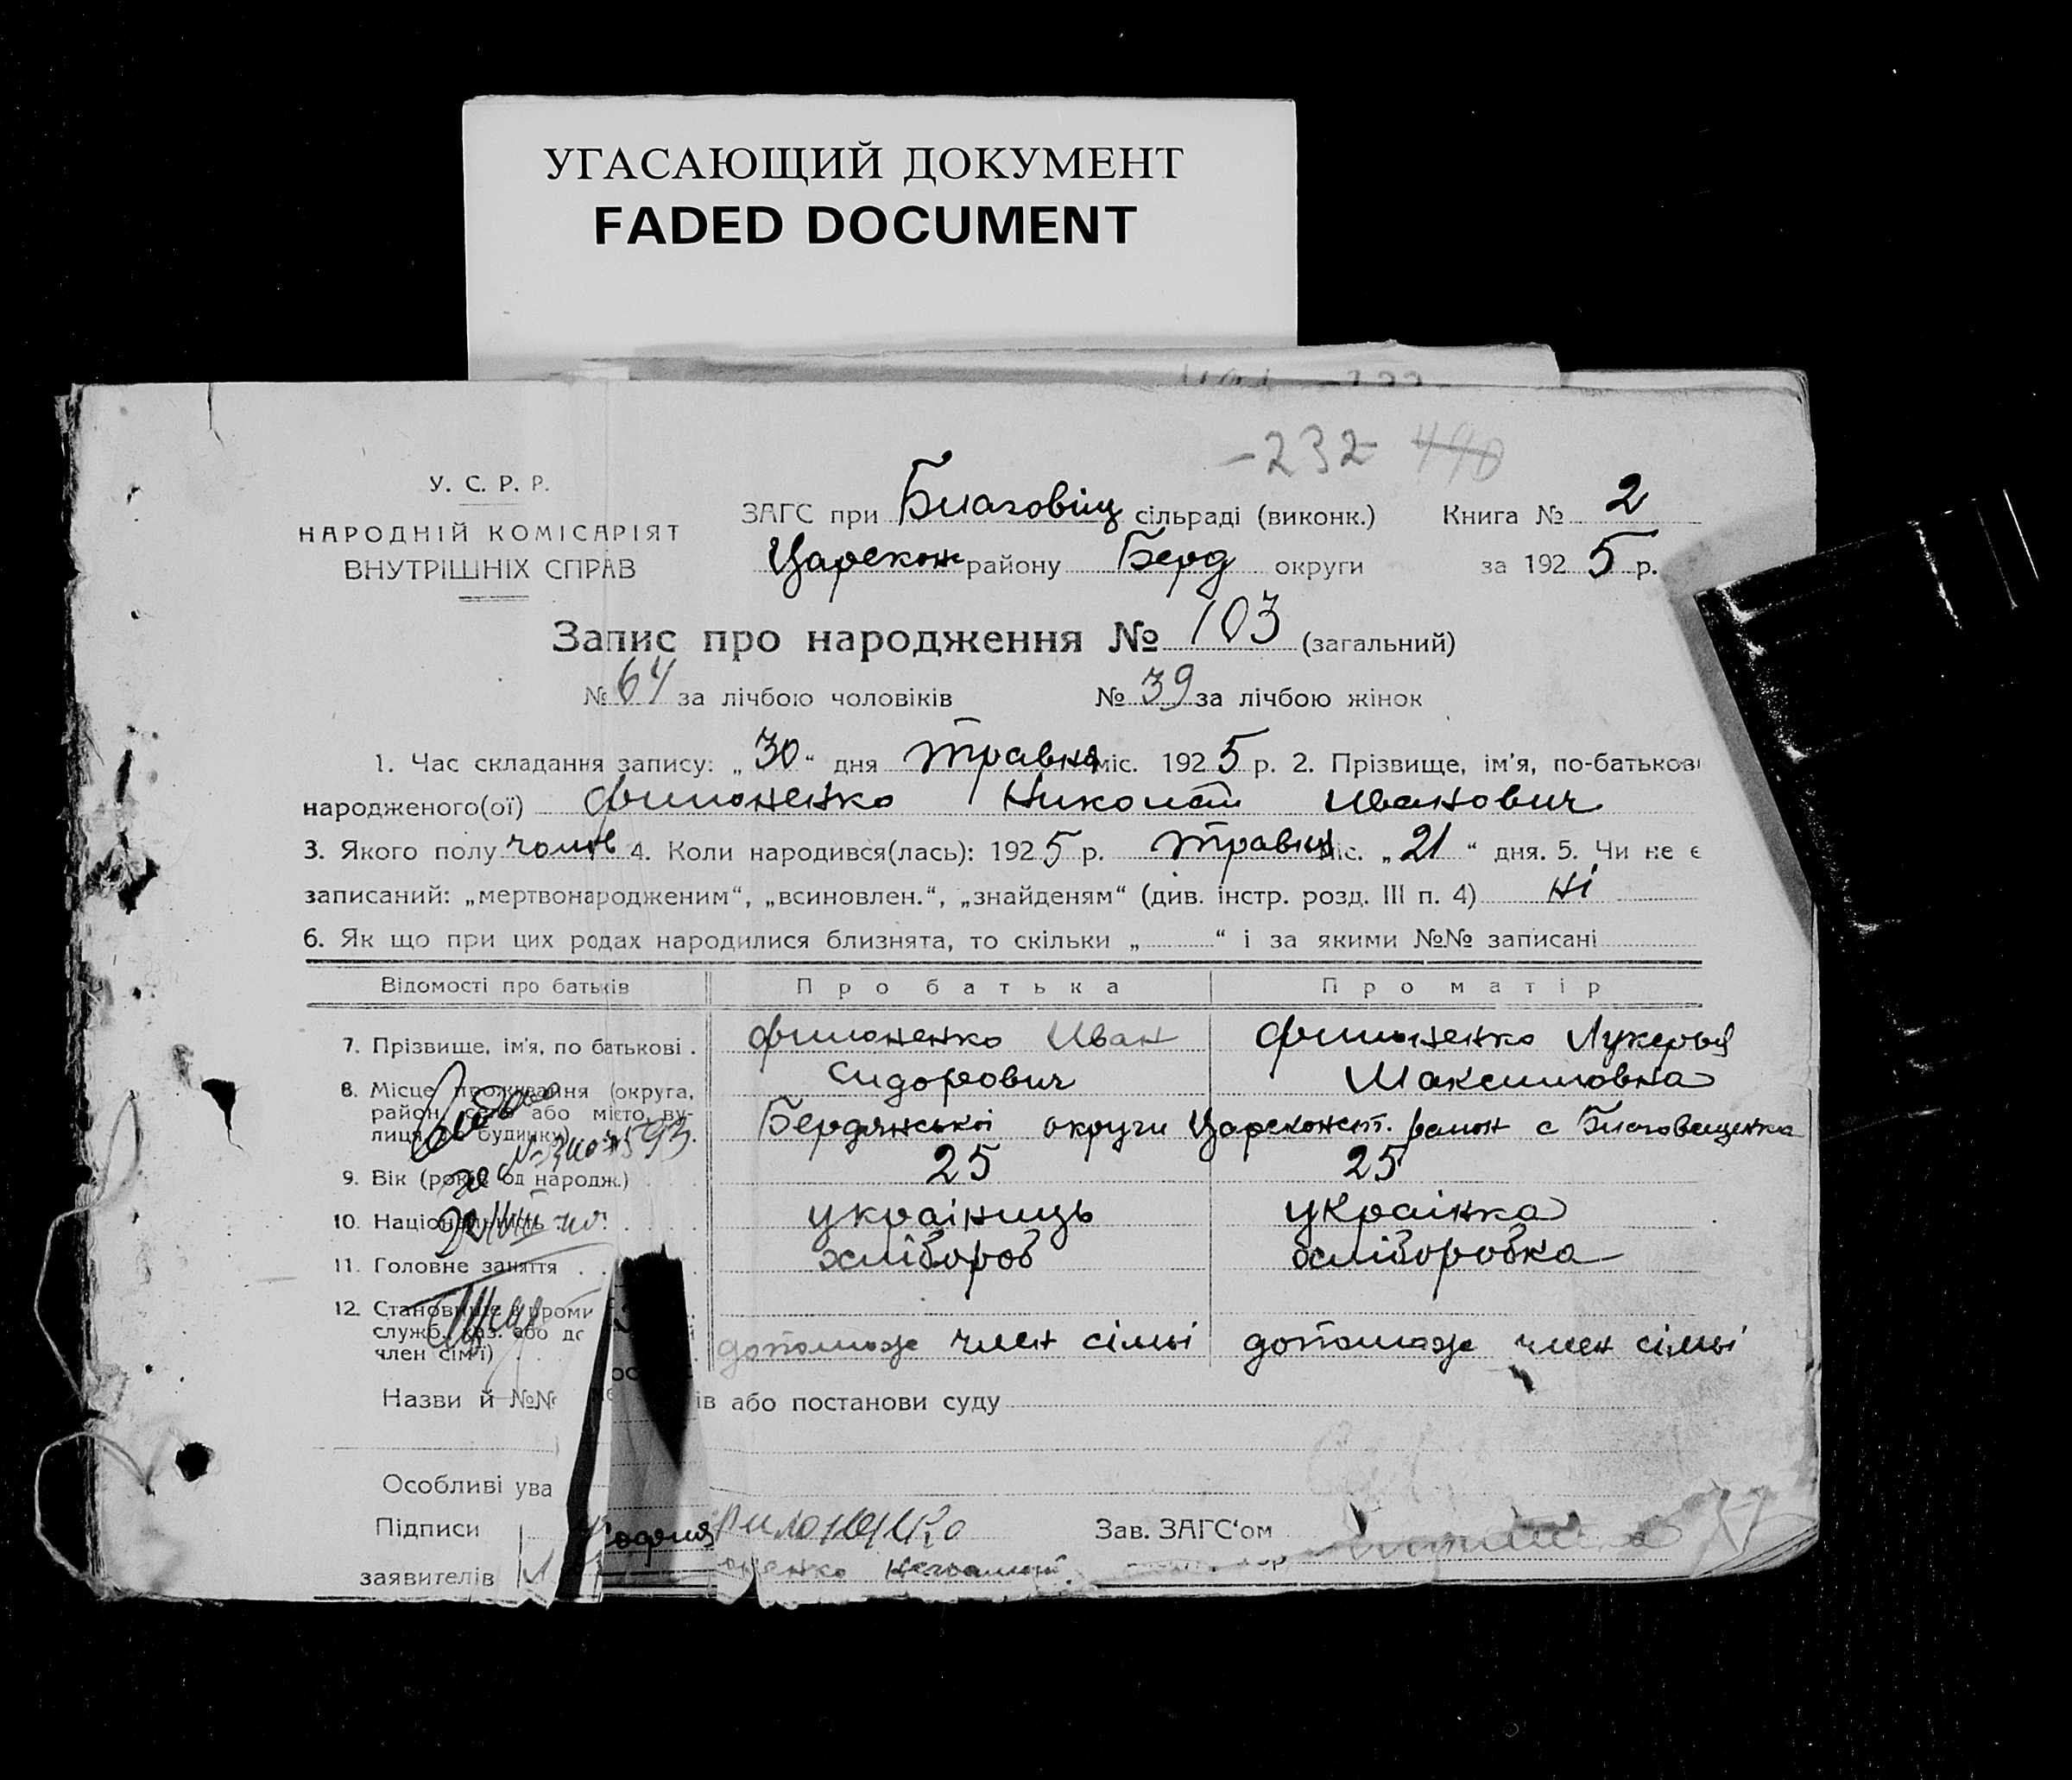 УГАСАЮЩИЙ ДОКУМЕНТ
FADED DOCUMENT
-232 490
У. С. Р. Р.
НАРОДНІЙ КОМІСАРІЯТ
ВНУТРІШНІХ СПРАВ
ЗАГС при Благовіщ сільраді (виконк.) Книга № 2
Царекон району Берд округи за 1925 р.
Запис про народження № 103 (загальний)
№ 64 за лічбою чоловіків № 39 за лічбою жінок
1. Час складання запису: „30“ дня травня міс. 1925 р. 2. Прізвище, ім'я, по-батькові
народженого(ої) Филоненко Николай Иванович
3. Якого полу чолов 4. Коли народився(лась): 1925 р. травня міс. „21“ дня. 5. Чи не є
записаний: „мертвонародженим“, „всиновлен.“, „знайденям“ (див. інстр. розд. III п. 4) ні
6. Як що при цих родах народилися близнята, то скільки „ “ і за якими №№ записані
Відомості про батьків Про батька Про матір
7. Прізвище, ім'я, по батькові . Филоненко Иван Филоненко Лукерья
Сидорович Максимовна
8. Місце проживання (округа,
район, село або місто, ву-
лиця, буд/инку) Бердянської округи Цареконст. район с Благовещенка
9. Вік (років од народж.) 25 25
10. Національність украінець украінка
11. Головне заняття хлібороб хлібороbка
12. Становище в проми
служб. 
член сім'ї) допомаж член сімьі допомаж член сімьі
Назви й №№ ів або постанови суду
Особливі ува
Підписи Филоненко Зав. ЗАГС'ом
заявителів оненко неграмот.